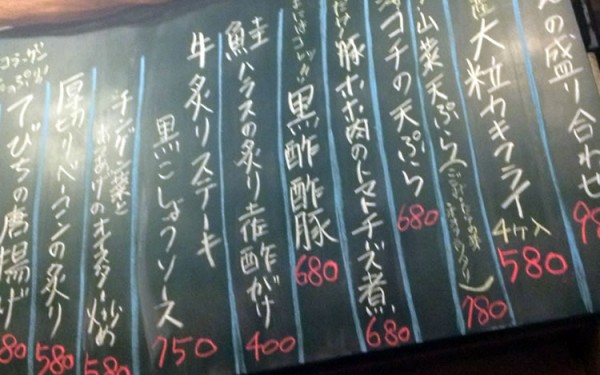 の盛り合わせ
大粒カキフライ
4ケ入
580
山菜天ぷら
780
コチの天ぷら
680
豚ホホ肉のトマトチーズ煮
680
黒酢酢豚
680
鮭ハラスの炙り土佐酢がけ
400
牛炙りステーキ
黒こしょうソース
750
チンゲン菜と
のオイスター炒め
580
厚切りベーコンの炙り
580
コラーゲン
てびちの唐揚げ
80